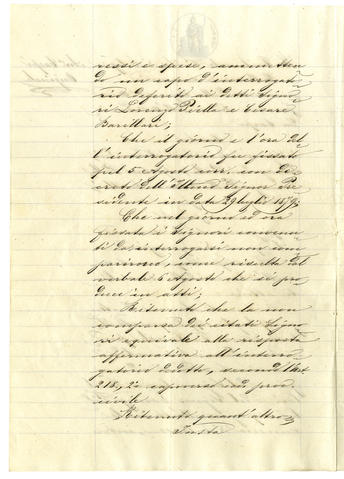 ressi e spese, ammetten
do un capo d'interrogato
rio deferito ai detti Signo
ri Lorenzo Piella e Cesare
Barillari;
Che il giorno e l'ora del
l'interrogatorio fu fissato
pel 5 Agosto corr. con De
creto dell'Ill.mo Signor Pre
sidente in data 29 luglio
Che nel giorno ed ora
fissata i Signori convenu
ti da interrogarsi non com
parirono, come risulta dal
verbale 5 Agosto che si pro
duce in atti;
Ritenuto che la non
comparsa dei citati Signo
ri equivale alla risposta
affirmativa all'interro
gatorio dedotto, secondo l'Art
218, 2° capoverso cod. proc.
civile
Ritenuto quant'altro
Insta